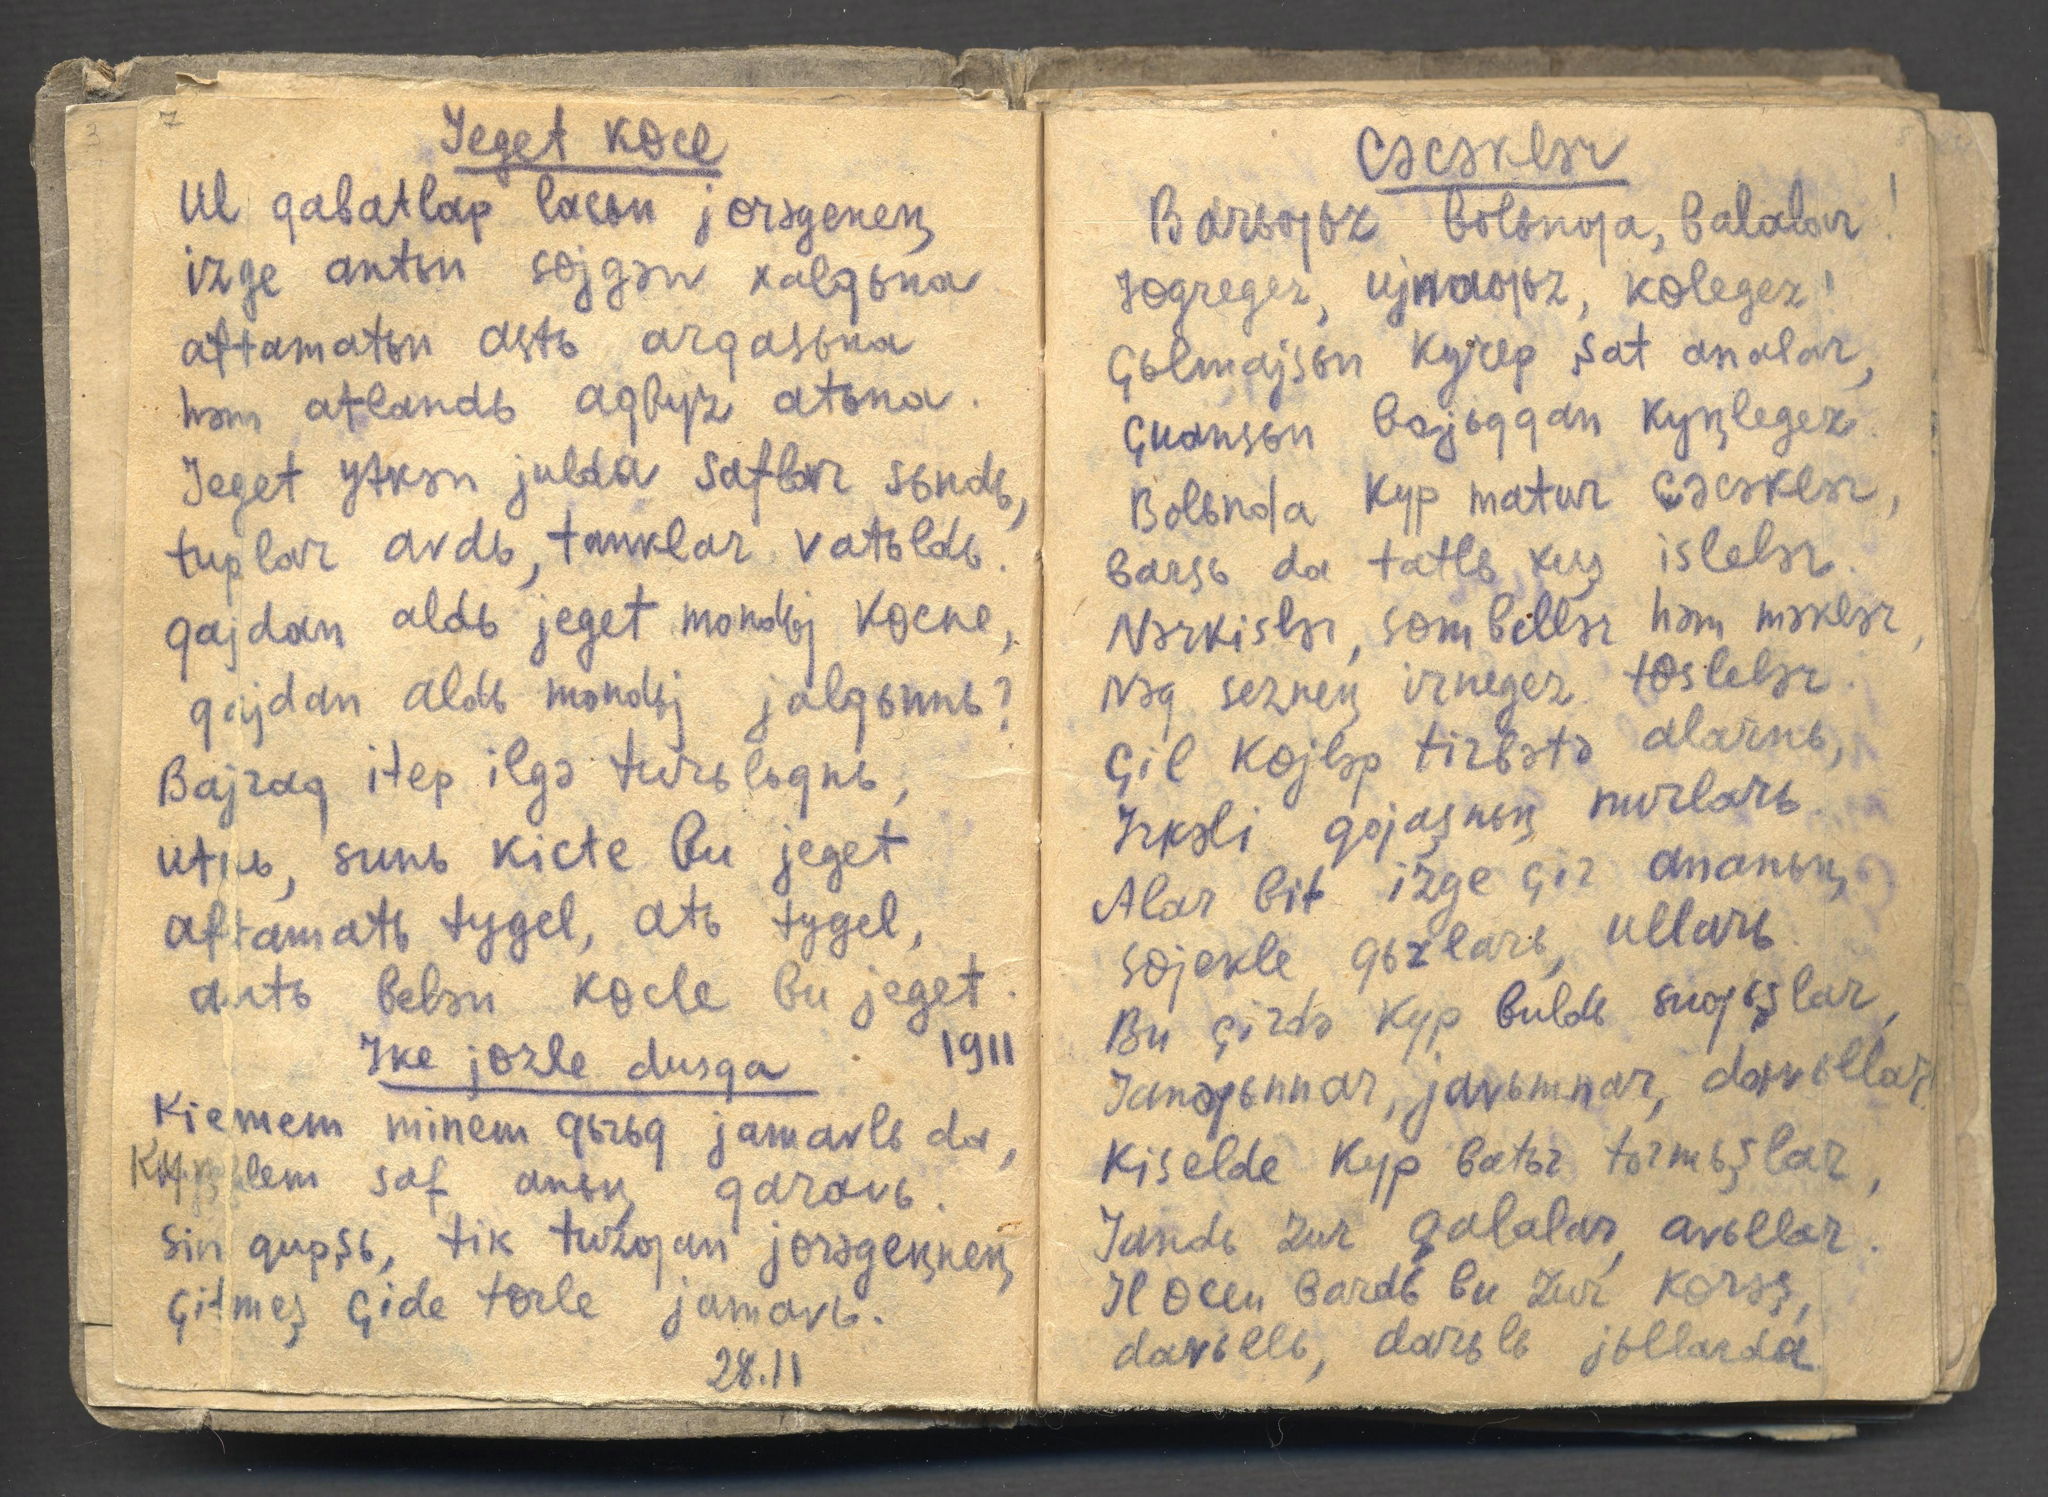 7
Jeget kɵce
Ul qabatlap lacьn jɵrəgeneꞑ
izge antьn sɵjgən xalqьna
aftamatьn astь arqasьna
həm atlandь aqbyz atьna.
Jeget ytkən julda saflar sьndь,
tuplar avdь, tanklar vatьldь.
qajdan aldь jeget mondьj kɵcne,
qajdan aldь mondьj jalqьnnь?
Bajraq itep ilgə turьlьqnь,
utnь, sunь kicte bu jeget
aftamatь tygel, atь tygel,
antь belən kɵcle bu jeget.
1911
Ike jɵzle dusqa
Kiemem minem qьrьq jamavlь da,
Kyꞑlem saf anьꞑ qaravь.
Sin qupşь, tik tuzƣan jɵrəgeꞑneꞑ
Çitmeş çide tɵrle jamavь.
28.11
Cəcəklər
Barьƣьz bolьnƣa, balalar!
Jɵgregez, ujnaƣьz, kɵlegez!
Çьlmajsьn kyrep şat analar,
Çuansьn bojьqqan kyꞑlegez.
Bolьnda kyp matur cəcəklər,
barsь da tatlь xuş islelər.
Nərkislər, sɵmbellər həm məklər,
Nəq sezneꞑ irnegez tɵslelər.
Çil kɵjləp tirbətə alarnь,
Irkəli qojaşnьꞑ nurlarь.
Alar bit izge çir ananьꞑ
sɵjekle qьzlarь, ullarь.
Bu çirdə kyp buldь suƣьşlar,
Janƣьnnar, javьmnar, davьllar.
Kiselde kyp batьr tormьşlar,
Jandь zur qalalar, avьllar.
Il ɵcen bardь bu zur kɵrəş,
davьllь, darьlь jьllarda